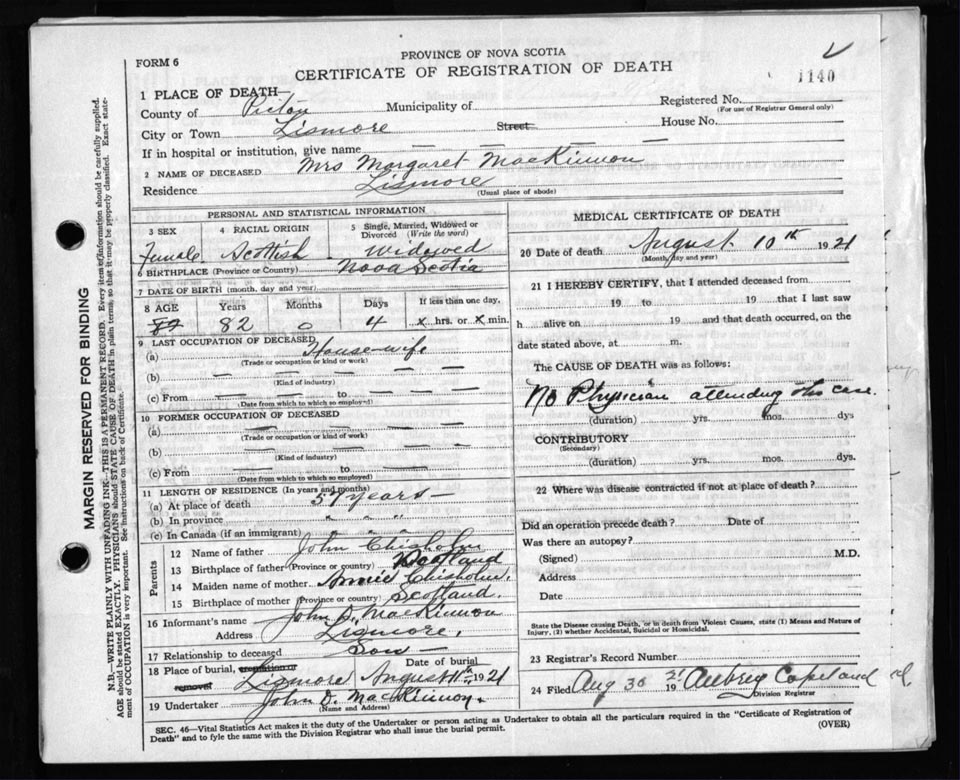 PROVINCE OF NOVA SCOTIA
FORM 6
CERTIFICATE OF REGISTRATION OF DEATH
1140
1 PLACE OF DEATH—
County of Pictou Municipality of Registered No.
(For use of Registrar General only)
City or Town Lismore Street House No.
If in hospital or institution, give name
2 NAME OF DECEASED Mrs Margaret MacKinnon
Residence Lismore
(Usual place of abode)
PERSONAL AND STATISTICAL INFORMATION
3 SEX 4 RACIAL ORIGIN 5 Single, Married, Widowed or Divorced (Write the word)
Female Scottish Widowed
6 BIRTHPLACE (Province or Country) Nova Scotia
7 DATE OF BIRTH (month, day and year)
8 AGE Years Months Days If less than one day,
82 0 4 x hrs. or x min.
9 LAST OCCUPATION OF DECEASED
(a) Housewife
(Trade or occupation or kind of work)
(b)
(Kind of industry)
(c) From to
(Date from which to which so employed)
10 FORMER OCCUPATION OF DECEASED
(a)
(Trade or occupation or kind of work)
(b)
(Kind of industry)
(c) From to
(Date from which to which so employed)
11 LENGTH OF RESIDENCE (In years and months)
(a) At place of death 57 years —
(b) In province " " "
(c) In Canada (if an immigrant) " " "
Parents
12 Name of father John Chisholm
13 Birthplace of father (Province or country) Scotland
14 Maiden name of mother Annie Chisholm.
15 Birthplace of mother (Province or country) Scotland.
16 Informant's name John D. MacKinnon
Address Lismore,
17 Relationship to deceased Son —
18 Place of burial, cremation or removal Date of burial
Lismore August 11th 1921
19 Undertaker John D. MacKinnon.
(Name and Address)
MEDICAL CERTIFICATE OF DEATH
20 Date of death August 10th 1921
(Month, day and year)
21 I HEREBY CERTIFY, that I attended deceased from
19 to 19 that I last saw
h alive on 19 and that death occurred, on the
date stated above, at m.
The CAUSE OF DEATH was as follows:
No Physician attending this case.
(duration) yrs. mos. dys
CONTRIBUTORY
(Secondary)
(duration) yrs. mos. dys.
22 Where was disease contracted if not at place of death?
Did an operation precede death? Date of
Was there an autopsy?
(Signed) M.D.
Address
Date
State the Disease causing Death, or in death from Violent Causes, state (1) Means and Nature of
Injury, (2) whether Accidental, Suicidal or Homicidal.
23 Registrar's Record Number
24 Filed Aug 30 1921 Aubrey Copeland
Division Registrar
SEC. 46—Vital Statistics Act makes it the duty of the Undertaker or person acting as Undertaker to obtain all the particulars required in the "Certificate of Registration of
Death" and to fyle the same with the Division Registrar who shall issue the burial permit. (OVER)
MARGIN RESERVED FOR BINDING
N.B.—WRITE PLAINLY WITH UNFADING INK—THIS IS A PERMANENT RECORD. Every item of information should be carefully supplied.
AGE should be stated EXACTLY. PHYSICIANS should STATE CAUSE OF DEATH in plain terms, so that it may be properly classified. Exact statement
of OCCUPATION is very important. See instructions on back of Certificate.